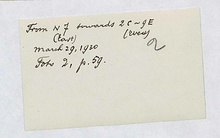 From N 7 towards 2 C - 9 E
(East) (West)
March 29, 1920
Fotr 2, p. 59.
2